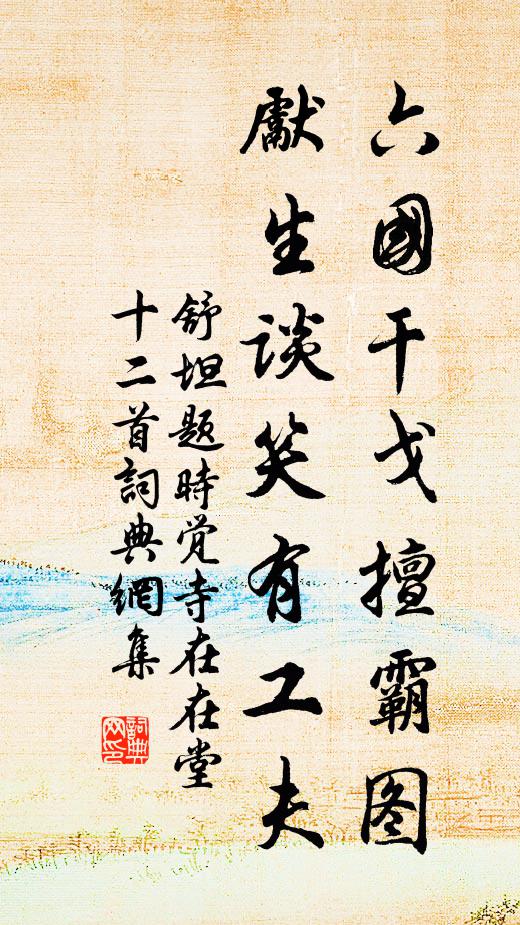 六國干戈擅霸图
獻生談笑有工夫
舒坦题時觉寺在在堂
十二首詞典網集
詞典网印